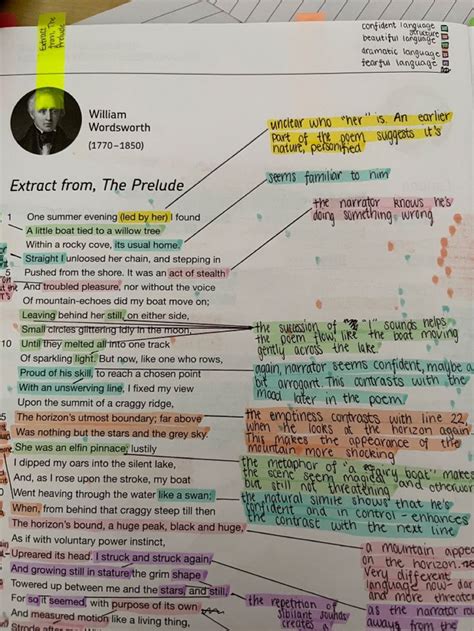 Extract from, The Prelude
confident language
structure
beautiful language
dramatic language
fearful language
William
Wordsworth
(1770–1850)
unclear who "her" is. An earlier
part of the poem suggests it's
nature, personified
seems familiar to him
Extract from, The Prelude
the narrator knows he's
doing something wrong
1 One summer evening (led by her) I found
A little boat tied to a willow tree
Within a rocky cove, its usual home.
Straight I unloosed her chain, and stepping in
5 Pushed from the shore. It was an act of stealth
And troubled pleasure, nor without the voice
Of mountain-echoes did my boat move on;
Leaving behind her still, on either side,
Small circles glittering idly in the moon,
10 Until they melted all into one track
Of sparkling light. But now, like one who rows,
Proud of his skill, to reach a chosen point
With an unswerving line, I fixed my view
Upon the summit of a craggy ridge,
The horizon's utmost boundary; far above
Was nothing but the stars and the grey sky.
She was an elfin pinnace; lustily
I dipped my oars into the silent lake,
And, as I rose upon the stroke, my boat
Went heaving through the water like a swan;
When, from behind that craggy steep till then
The horizon's bound, a huge peak, black and huge,
As if with voluntary power instinct,
Upreared its head. I struck and struck again,
And growing still in stature the grim shape
Towered up between me and the stars, and still,
For so it seemed, with purpose of its own
And measured motion like a living thing,
Strode after me.
the sucession of "l" sounds helps
the poem flow, like the boat moving
gently across the lake.
again, narrator seems confident, maybe a
bit arrogant. This contrasts with the
mood later in the poem.
the emptiness contrasts with line 22,
when he looks at the horizon again.
This makes the appearance of the
mountain more shocking.
the metaphor of "a boat" makes
scene seem magical and otherwor
but still not threatening
the natural simile shows that he's
confident and in control - enhances
the contrast with the next line
a mountain appe
on the horizon.
Very different
language now- da
and more threaten
the repetition of
sibilant sounds
creates a
as the narrator ro
always from the